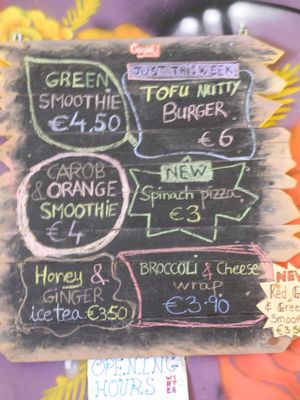 GREEN
SMOOTHIE
€4.50
JUST THIS WEEK
TOFU NUTTY
BURGER
€6
CAROB
& ORANGE
SMOOTHIE
€4
NEW
Spinach pizza
€3
Honey &
GINGER
ice tea €3.50
BROCCOLI & Cheese
wrap
€3.90
NEW
Red
& Green
Smooth
€3.5
OPENING
HOURS
WINTER